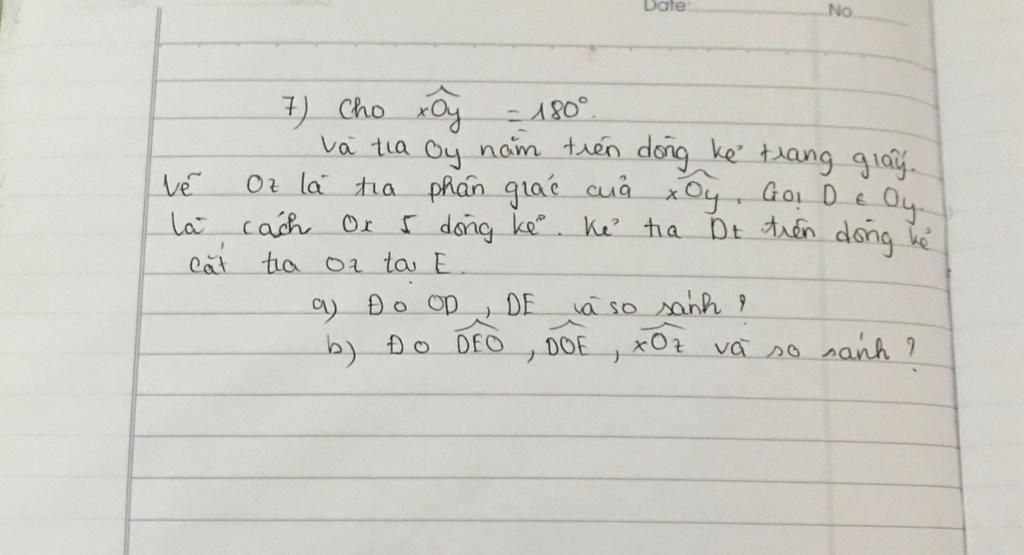 Date: No
7) Cho xOy = 180°.
và tia Oy nằm trên dòng kẻ trang giấy.
Vẽ Oz là tia phân giác của xOy. Gọi D ∈ Oy.
là cách Ox 5 dòng kẻ. Kẻ tia Dt trên dòng kẻ
cắt tia Oz tại E.
a) Đo OD, DE và so sánh?
b) Đo DEO, DOE, xOz và so sánh?